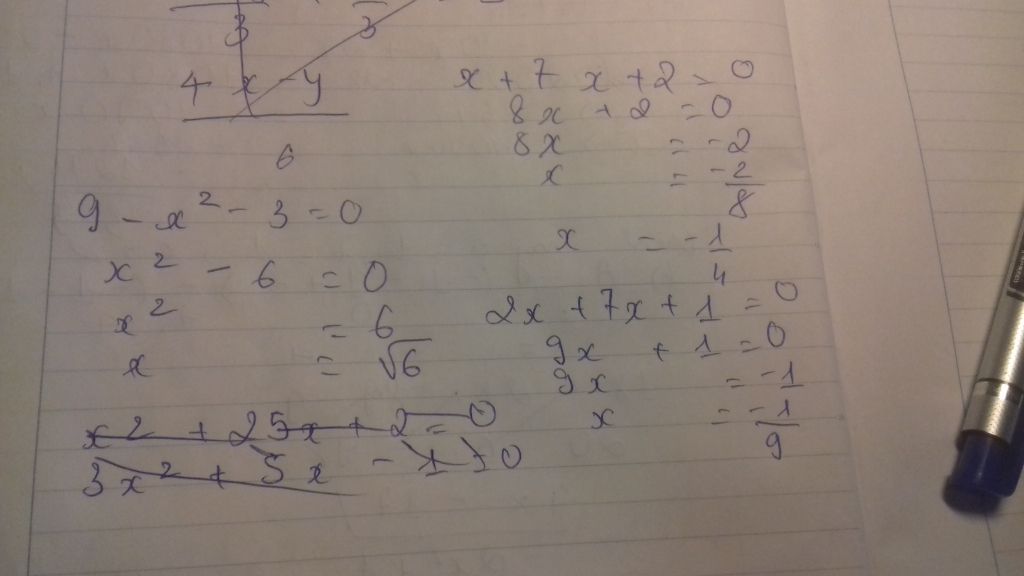 3 3
4 x - y
6
9 - x² - 3 = 0
x² - 6 = 0
x² = 6
x = √6
x² + 25x + 2 = 0
3x² + 5x - 1 = 0
x + 7x + 2 = 0
8x + 2 = 0
8x = -2
x = -2/8
x = -1/4
2x + 7x + 1 = 0
9x + 1 = 0
9x = -1
x = -1/9